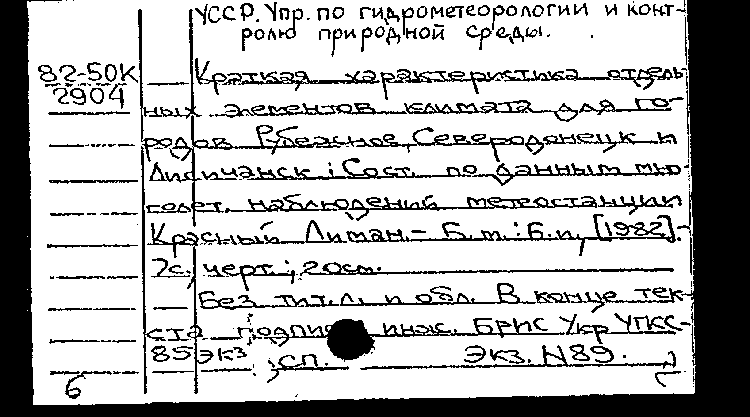 УССР. Упр. по гидрометеорологии и конт-
ролю природной среды.
82-50К
2904
Краткая характеристика отдель-
ных элементов климата для го-
родов Рубежное, Северодонецк и
Лисичанск : Сост. по данным мно-
голет. наблюдений метеостанции
Красный Лиман. - Б. м. : Б. и, [1982]. -
7с., черт.; 20см.
Без тит. л. и обл. В конце тек-
ста подпись инж. БРИС Укр УГКС-
85 экз СП. Экз. N89.
6